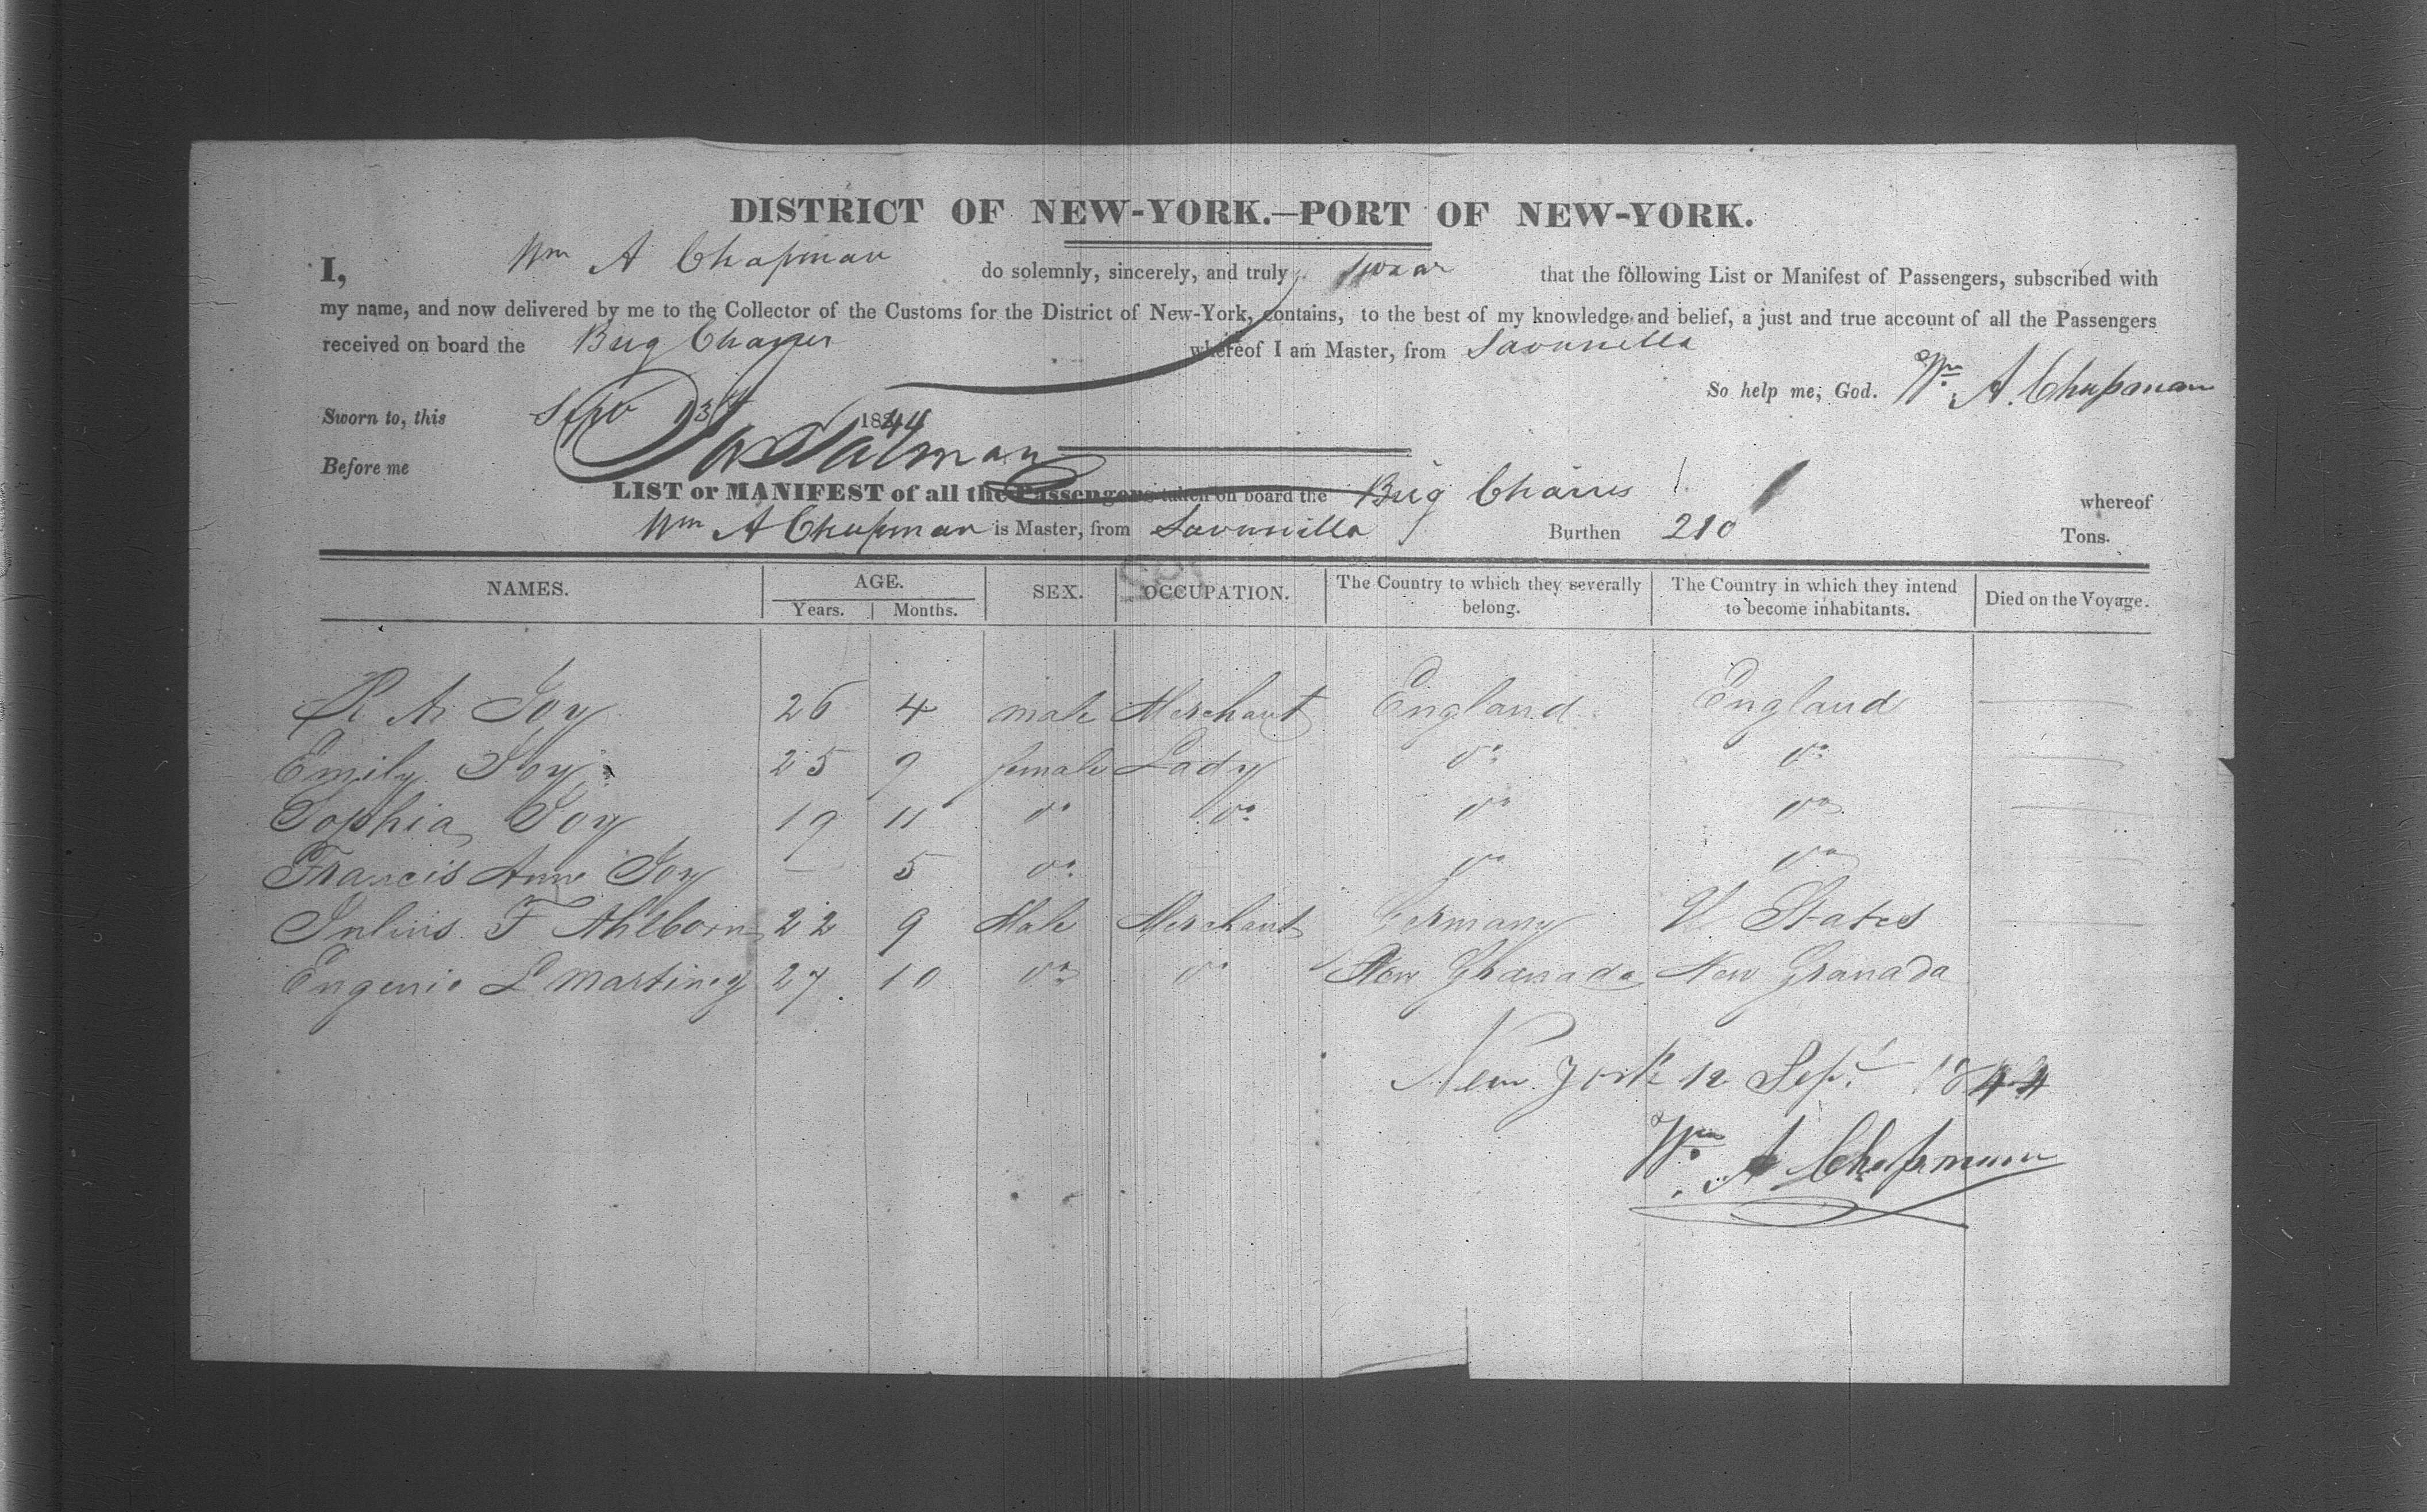 DISTRICT OF NEW-YORK.—PORT OF NEW-YORK.
I, Wm A Chapman do solemnly, sincerely, and truly swear that the following List or Manifest of Passengers, subscribed with
my name, and now delivered by me to the Collector of the Customs for the District of New-York, contains, to the best of my knowledge and belief, a just and true account of all the Passengers
received on board the Brig whereof I am Master, from Savanilla
So help me, God. Wm A. Chapman
Sworn to, this Sep 13 1844
Before me
LIST or MANIFEST of all the Passengers taken on board the Brig whereof
Wm A Chapman is Master, from Savanilla Burthen 210 Tons.
NAMES. AGE. SEX. OCCUPATION. The Country to which they severally belong. The Country in which they intend to become inhabitants. Died on the Voyage.
Years. Months.
R. A. Joy 26 4 male Merchant England England
Emily Joy 25 9 female Lady Do Do
Sophia Joy 19 11 Do Do Do Do
Francis Anne Joy — 5 Do Do Do
Julius F Ahlborn 22 9 Male Merchant Germany U. States
Eugenio L Martinez 27 10 Do Do New Granada New Granada
New York 12 Sept 1844
Wm A Chapman